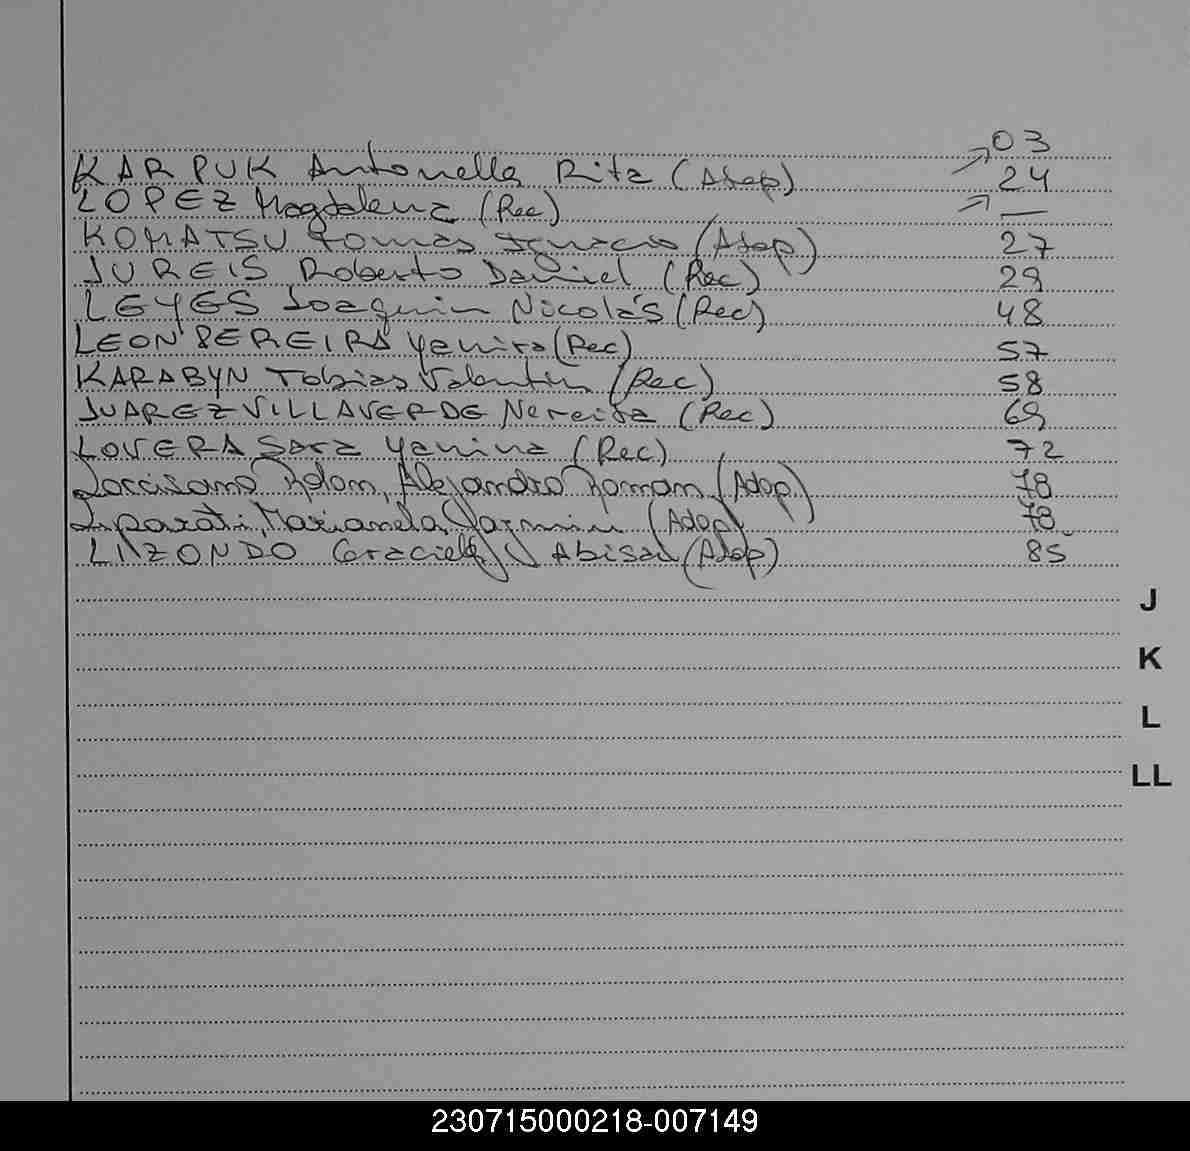 03
KARPUK Antonella Rita (Adop) 24
LOPEZ Magdalena (Rec) —
KOMATSU Tomas Ignacio (Adop) 27
JUREIS Roberto Daniel (Rec) 29
LEYES Joaquin Nicolás (Rec) 48
LEON PEREIRA Yanira (Rec) 57
KARABYN Tobias Valentin (Rec) 58
JUAREZ VILLAVERDE Nereida (Rec) 69
LOVERA Sara Yanina (Rec) 72
Rolon, Alejandro Roman (Adop) 78
Liparati, Marianela Yazmin (Adop) 78
LIZONDO Graciela Abisai (Adop) 85
J
K
L
LL
230715000218-007149